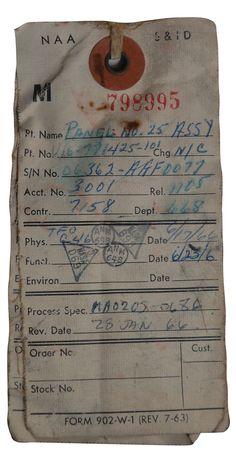 NAA S&ID
M
798995
Pt. Name PANEL NO. 25 ASSY
Pt. No. 16-771425-101 Chg. N/C
S/N No. 06362-AAF0077
Acct. No. 3001 Rel. 1105
Contr. 7158 Dept. 668
Phys. Date 9/7/66
Funct. Date 6/23/6
Environ Date
Process Spec. MA0205-
Rev. Date 28 JAN 66
Order No. Cust.
Stock No.
FORM 902-W-1 (REV. 7-63)